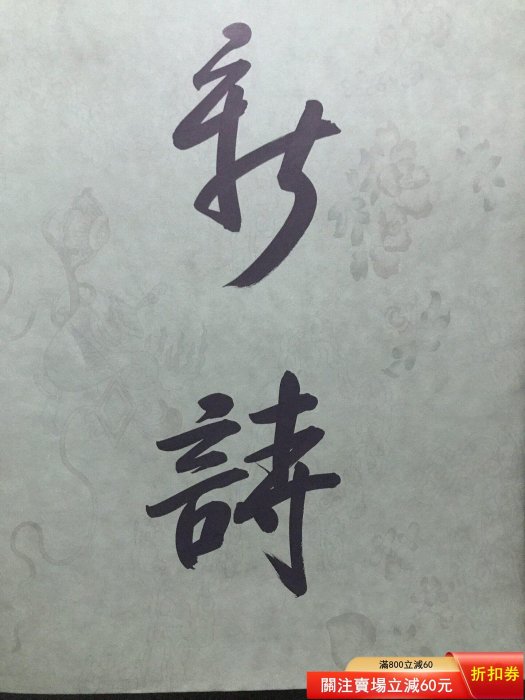 新
詩
滿800立減60
關注賣場立減60元
折扣券